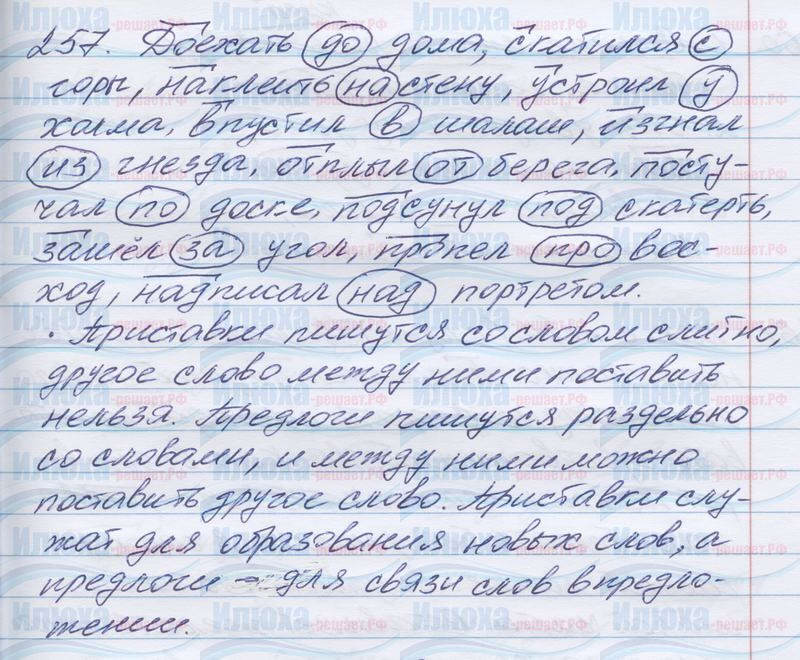 257. Доехать до дома, скатился с
горы, наклеить на стену, устроил у
холма, впустил в шалаш, изгнал
из гнезда, отплыл от берега, посту-
чал по доске, подсунул под скатерть,
зашёл за угол, пропел про вос-
ход, надписал над портретом.
· Приставки пишутся со словом слитно,
другое слово между ними поставить
нельзя. Предлоги пишутся раздельно
со словами, и между ними можно
поставить другое слово. Приставки слу-
жат для образования новых слов, а
предлоги – для связи слов в предло-
жении.